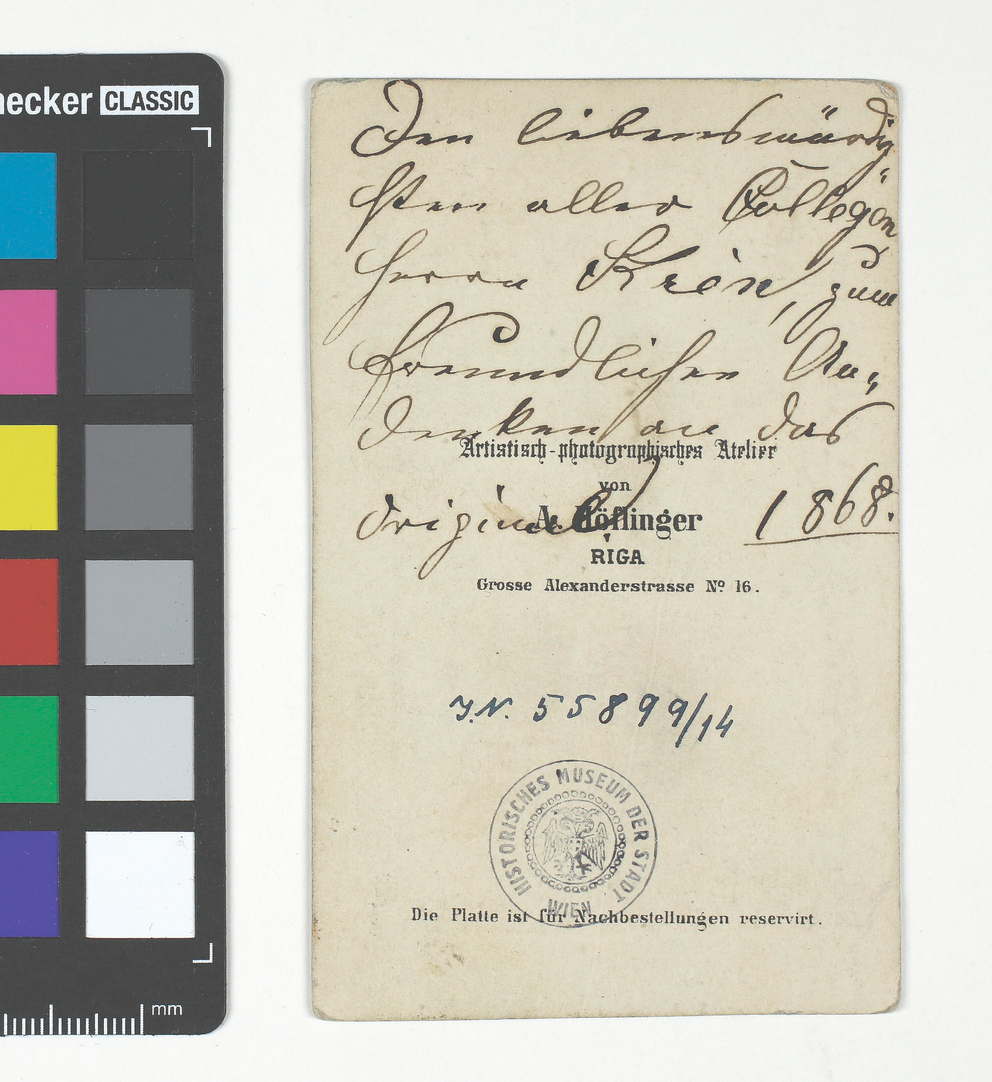 necker CLASSIC
Den liebenswürdig-
sten aller Collegen
Herrn Krén, zum
freundlichen An-
denken an das
Artistisch-photographisches Atelier
von
Original! 1868.
A. Höflinger
RIGA
Grosse Alexanderstrasse Nº 16.
J.N. 55899/14
HISTORISCHES MUSEUM DER STADT
WIEN
Die Platte ist für Nachbestellungen reservirt.
mm